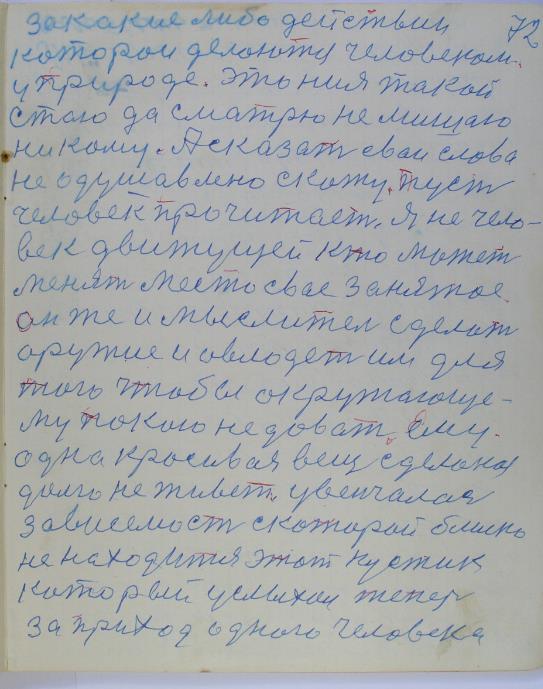 72
за какие либо действии
которои делоютя человеком.
у природе. Это ния такой
стаю да сматрю не мишаю
никому. А сказат сваи слова
не одушавлено скожу. Пуст
человек прочитает. Я не чело-
век движущей кто может
менят место свае занятое.
он же и мыслител сделат
оружие и овлодет им для
того чтобы окружающе-
му покою не доват. Ему.
одна красивая вещ сделоная
долго не живет, увенчалая
зависемост с которой близко
не находитя этот кустик
который услыхал тепер
за приход одного человека